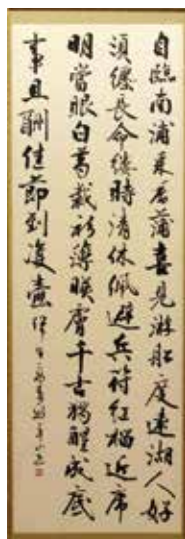 自臨南浦采菖蒲喜見游船度遠湖人好
須纏長命縷時清休佩避兵符紅榴近席
明當眼白葛裁衫薄映膚千古獨醒成底
事且酬佳節到壺